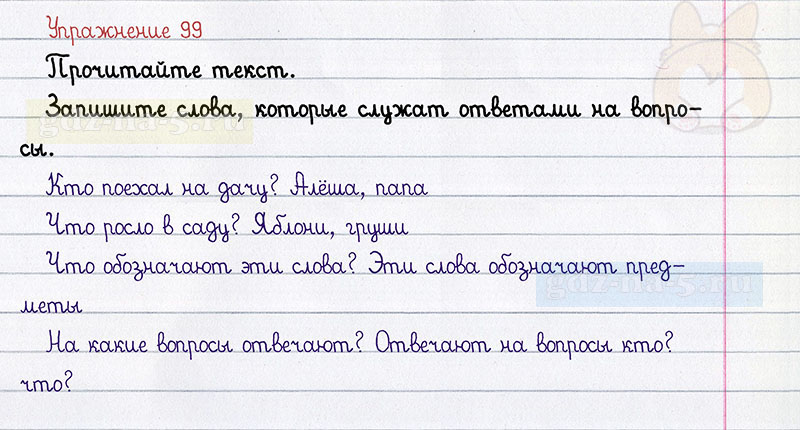 Упражнение 99
Прочитайте текст.
Запишите слова, которые служат ответами на вопро-
сы.
Кто поехал на дачу? Алёша, папа
Что росло в саду? Яблони, груши
Что обозначают эти слова? Эти слова обозначают пред-
меты
На какие вопросы отвечают? Отвечают на вопросы кто?
что?
gdz-na-5.ru
gdz-na-5.ru